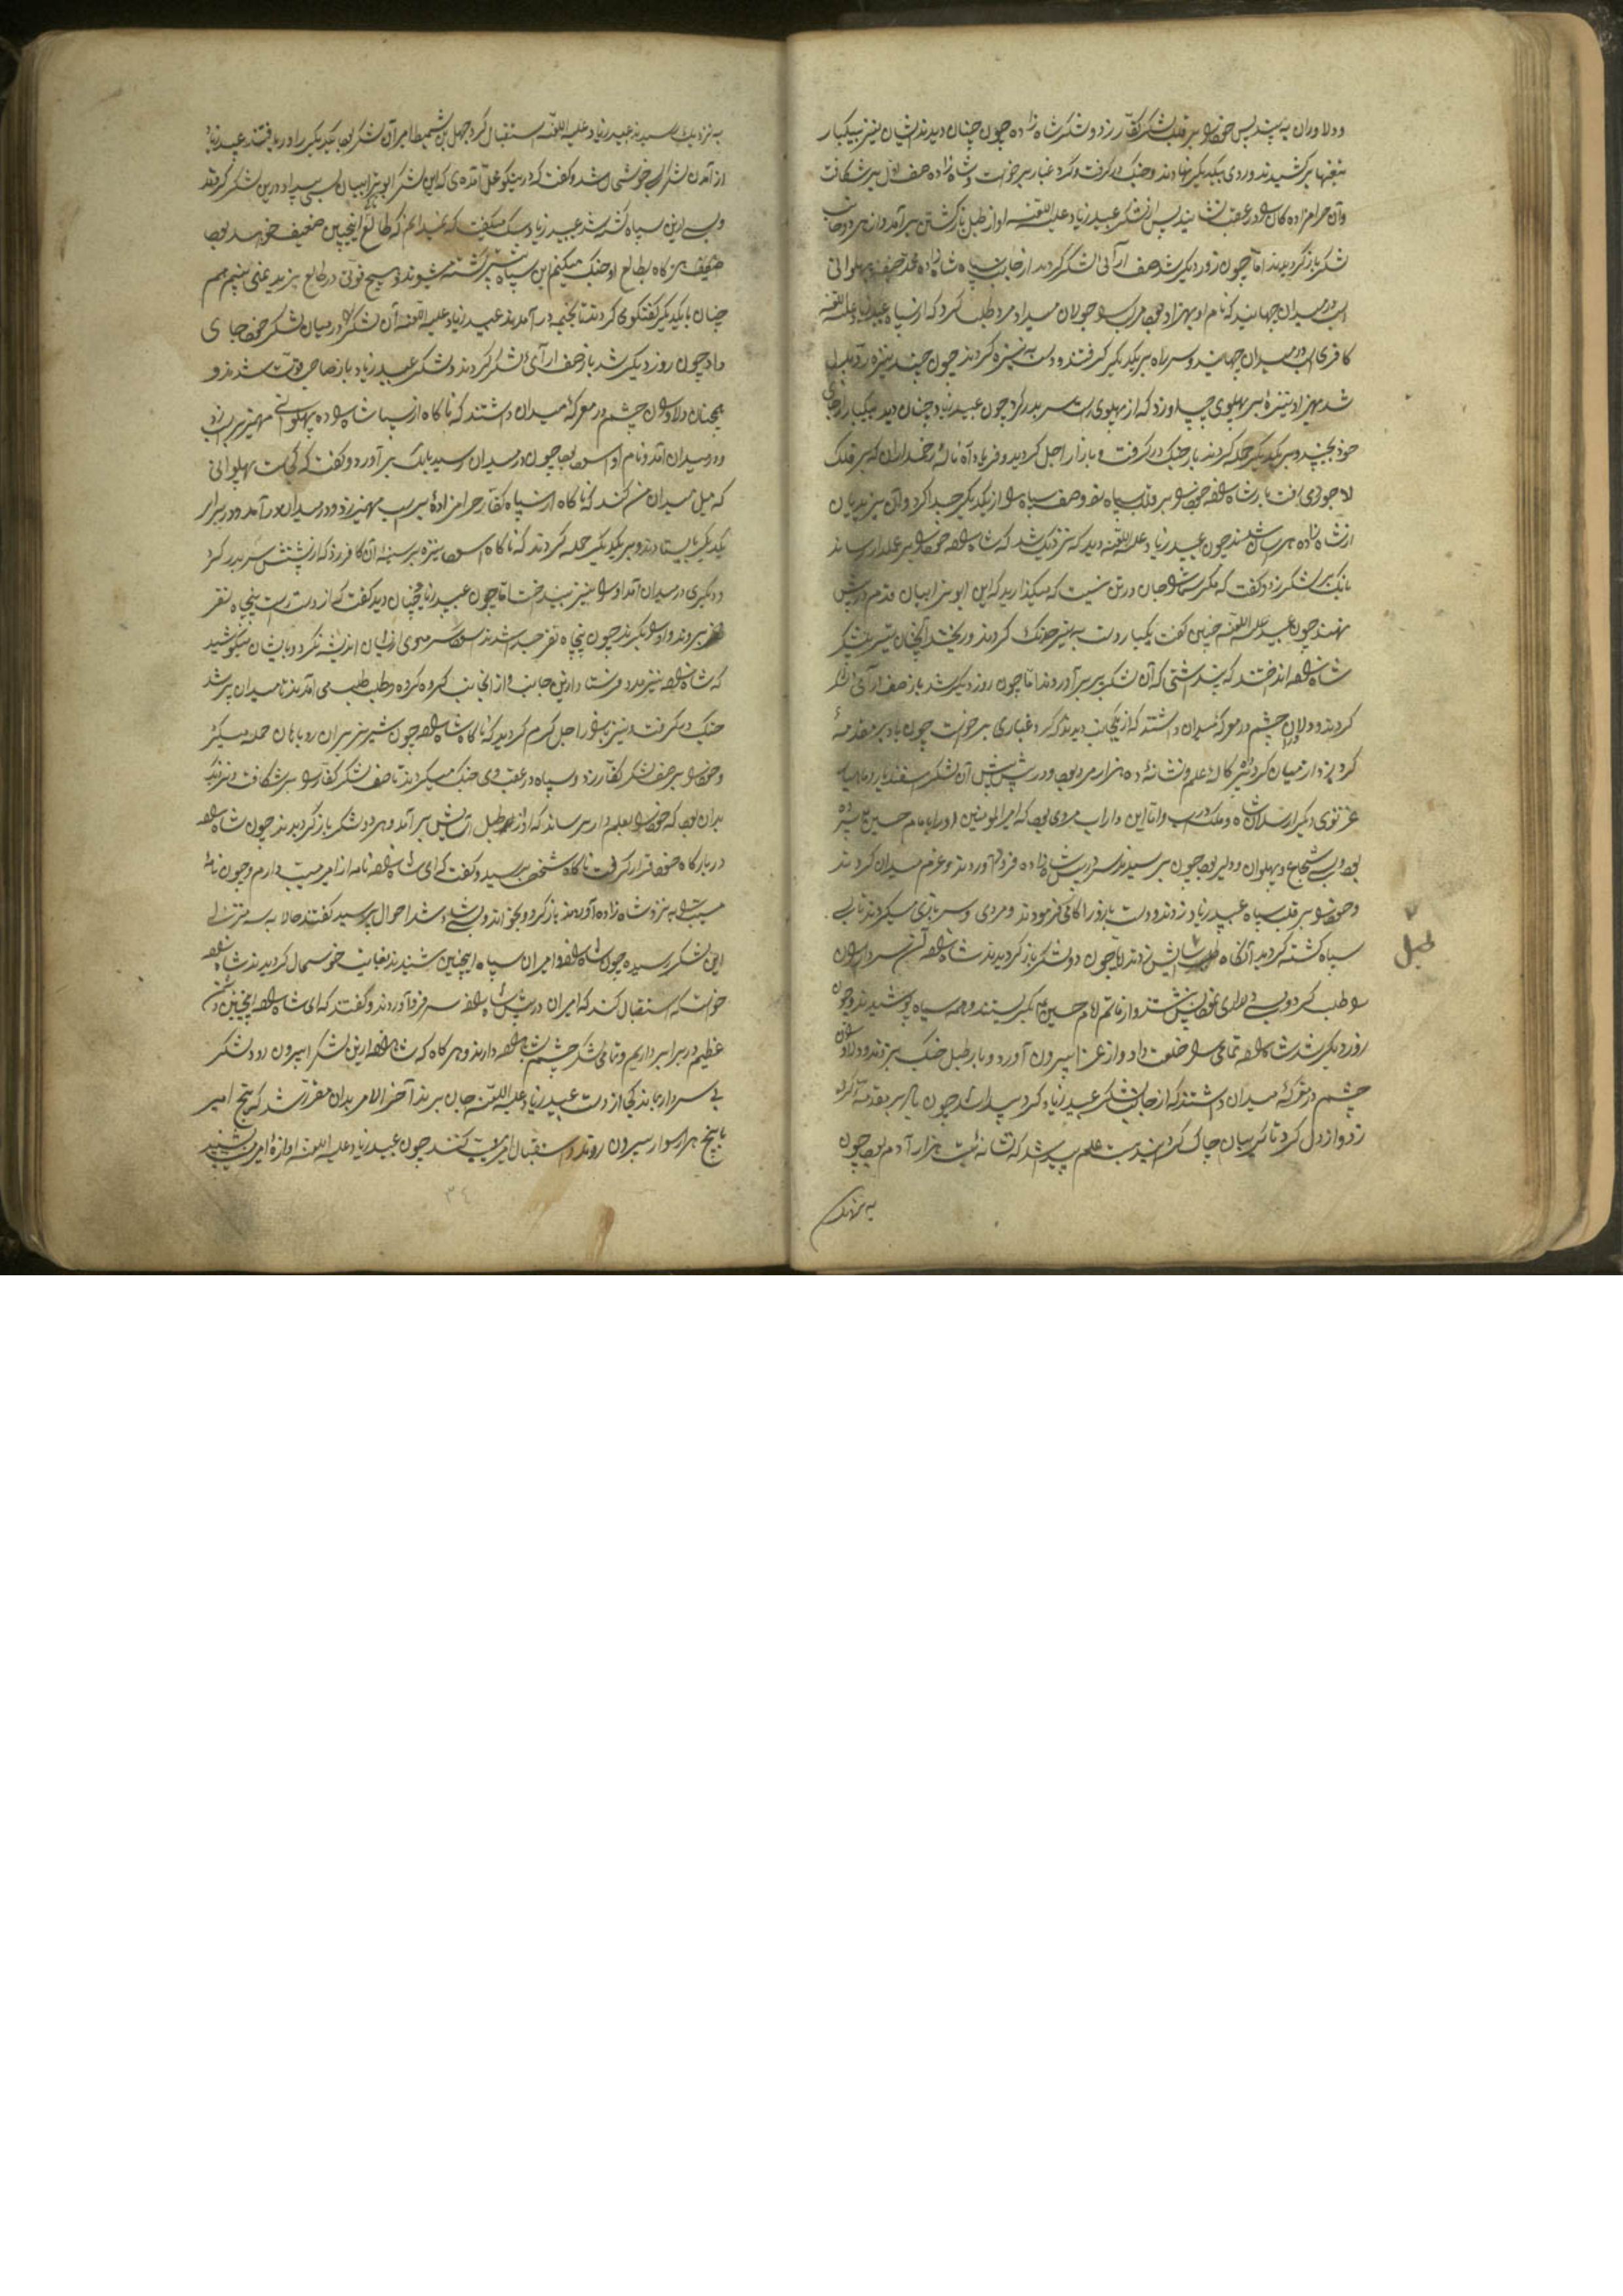 ودلاوران پسندیدند پس خود را بر قلب لشکر کفار زد و لشکر شاه زاده چون چنان دیدند ایشان نیز بیکبار
تیغها برکشیدند و روی بیکدیگر نهادند و جنک در گرفت و کرد و غبار برخواست و شاه زاده صف اول بر شکافت
وآن حرامزاده کان را در عقب پس از لشکر عبید زیاد علیه اللعنه اواز طبل بازکشتن برآمد و از هر دو جانب
لشکر باز کردیدند اما چون روز دیکر شد صف آرائی لشکر کردند از جانب سپاه شاه زاده محمد حنیفه پهلوانی
اسب در میدان جهانید که نام او بهزاد بود مرکب را جولان میداد و مرد طلب کرد که از سپاه عبید زیاد علیه اللعنه
کافری اسب در میدان جهانید و سر راه بر یکدیکر کرفتند و دست به نیزه کردند چون چند نیزه رد و بدل
شد بهزاد نیزهٔ بر پهلوی چپ او زد که از پهلوی راست سر بدر کرد چون عبید زیاد چنان دید بیکبار از جای
خود بجنبید و بر یکدیکر حمله کردند باز جنک در کرفت و بازار اجل کردید و فریاد و آه و نالهٔ زخمداران که بر فلک
لاجوردی رفت باز شاه زاده خود را بر قلب سپاه زد و صف سپاه را از یکدیکر جدا کرد و آن یزیدیان
از شاه زاده هراسان شدند چون عبید زیاد علیه اللعنه دید که نزدیک شد که شاه زاده خود را بر علمدار رساند
بانک بر لشکر زد و کفت که مکر شما را جان در تن نیست که میکذارید که این ابوترابیان قدم در پیش
نهند چون عبید علیه اللعنه چنین کفت یکبار دست به تیر خدنک کردند و ریختند آنچنان تیر بر لشکر
شاه زاده انداختند که پنداشتی که آن لشکر پر برآوردند اما چون روز دیکر شد باز صف آرائی لشکر
کردند و دلاوران چشم در معرکهٔ میدان داشتند که از یکجانب دیدند که کرد و غباری برخواست چون باد بر مقدمهٔ
کرد زد از میان کرد علم و نشانهٔ ده هزار مرد بود و در پیش پیش آن لشکر
غزنوی دیکر ارسلان شاه و ملک داراب واما این داراب مردی بود که امیرالمومنین او را با امام حسین
بود و بسی شجاع و پهلوان و دلیر بود چون برسیدند سر در پیش شاه زاده فرود آوردند و عزم میدان کردند
وخود را بر قلب سپاه عبید زیاد زدند و دست بازو را کافی فرمودند و مردی و سربازی میکردند تا بسی
سپاه کشته کردید آنکاه طبل آسایش زدند اما چون دو لشکر باز کردیدند شاه زاده آن سرداران
را طلب کرد و بسی دلداری نمود پس نشستند و از ماتم امام حسین بکریستند و همه سیاه پوشیدند و چون
روز دیکر شد شاه زاده تمامی را خلعت داد و از عزا بیرون آورد و باز طبل جنک بزدند و دلاوران
چشم در معرکهٔ میدان داشتند که از جانب لشکر عبید زیاد کرد پیدا شد چون باد بر مقدمهٔ کرد
زد و از دل کرد تا کریبان چاک کردید بیست علم پیدا شد که نشانه بیست هزار آدم بود چون
به نزدیک
طبل
به نزدیک رسیدند عبید زیاد علیه اللعنه استقبال کرد جهل بن شمیط امیر آن لشکر بود یکدیکر را دریافتند عبید زیاد
از آمدن لشکر بسی خوشحال شد و کفت که در نیکو محل آمدهٔ که این لشکر ابوترابیان بسی بیداد درین لشکر کردند
وبسی ازین سپاه کشته شد عبید زیاد سک میکفت که نمیدانم که طالع اینچنین ضعیف خواهد بود
هرکاه بطالع او جنک میکنم این سپاه بیشتر کشته میشوند و هیچ قوتی در طالع یزید نمی بینم هم
چنان بایکدیکر کفتکوی کردند تا بخیمه در آمدند عبید زیاد علیه اللعنه آن لشکر را در میان لشکر خود جای
داد چون روز دیکر شد باز صف آرای لشکر کردند و لشکر عبید زیاد باز صاحب قوت شدند و
همچنان دلاوران چشم در معرکهٔ میدان داشتند که ناکاه از سپاه شاه زاده پهلوانی مهمیز بر اسب زد
ودر میدان آمد و نام او بود چون در میدان رسید بانک برآورد و کفت که کجاست پهلوانی
که میل میدان من کند که ناکاه از سپاه کفار حرامزادهٔ بر اسب مهمیز زد و در میدان درآمد و در برابر
یکدیکر بایستادند و بر یکدیکر حمله کردند که ناکاه نیزه بر سینهٔ آن کافر زد که از پشتش سر بدر کرد
ودیکری در میدان آمد او را نیز بینداخت اما چون عبید زیاد همچنان دید کفت که از دست راست پنجاه نفر
بروند و او را بکیرند چون پنجاه نفر جدا شدند سر موی از ایشان اندیشه نکرد و با ایشان میکوشید
که شاه زاده نیز مدد فرستاد ازین جانب و از آن جانب کروه کروه و طلب طلب می آمدند تا میدان پر شد
جنک در کرفت و نیز بازار اجل کرم کردید که ناکاه شاه زاده چون شیر نر بر آن روباهان حمله میکرد
وخود را بر صف لشکر کفار زد و سپاه در عقب وی جنک میکردند تا صف لشکر کفار را بر شکافت و نزدیک
بدان بود که خود را بعلمدار برساند که اواز طبل آسایش برآمد و هر دو لشکر باز کردیدند چون شاه زاده
در بارکاه خود قرار کرفت ناکاه شخصی برسید و کفت که ای شاه زاده نامه از امیر مسیب دارم و چون نامهٔ
مسیب را به نزد شاه زاده آوردند باز کرد و بخواند و بسی شاد شد احوال پرسید کفتند حالا به سه منزلی
این لشکر رسیده چون شاه زاده و امیران سپاه اینچنین شنیدند بغایت خوشحال کردیدند شاه زاده
خواست که استقبال کند که امیران در پیش شاه زاده سر فرود آوردند و گفتند که ای شاه زاده اینچنین دشمن
عظیم در برابر داریم و تمامی لشکر چشم بشاه زاده دارند و هرکاه که شاه زاده ازین لشکر بیرون رود لشکر
بی سردار بماند کی از دست عبید زیاد علیه اللعنه جان برند آخر الامر بدان مقرر شد که پنج امیر
با پنج هزار سوار بیرون روند و استقبال امیر مسیب کنند چون عبید زیاد علیه اللعنه اوازهٔ امیر مسیب بشنید
٣٤